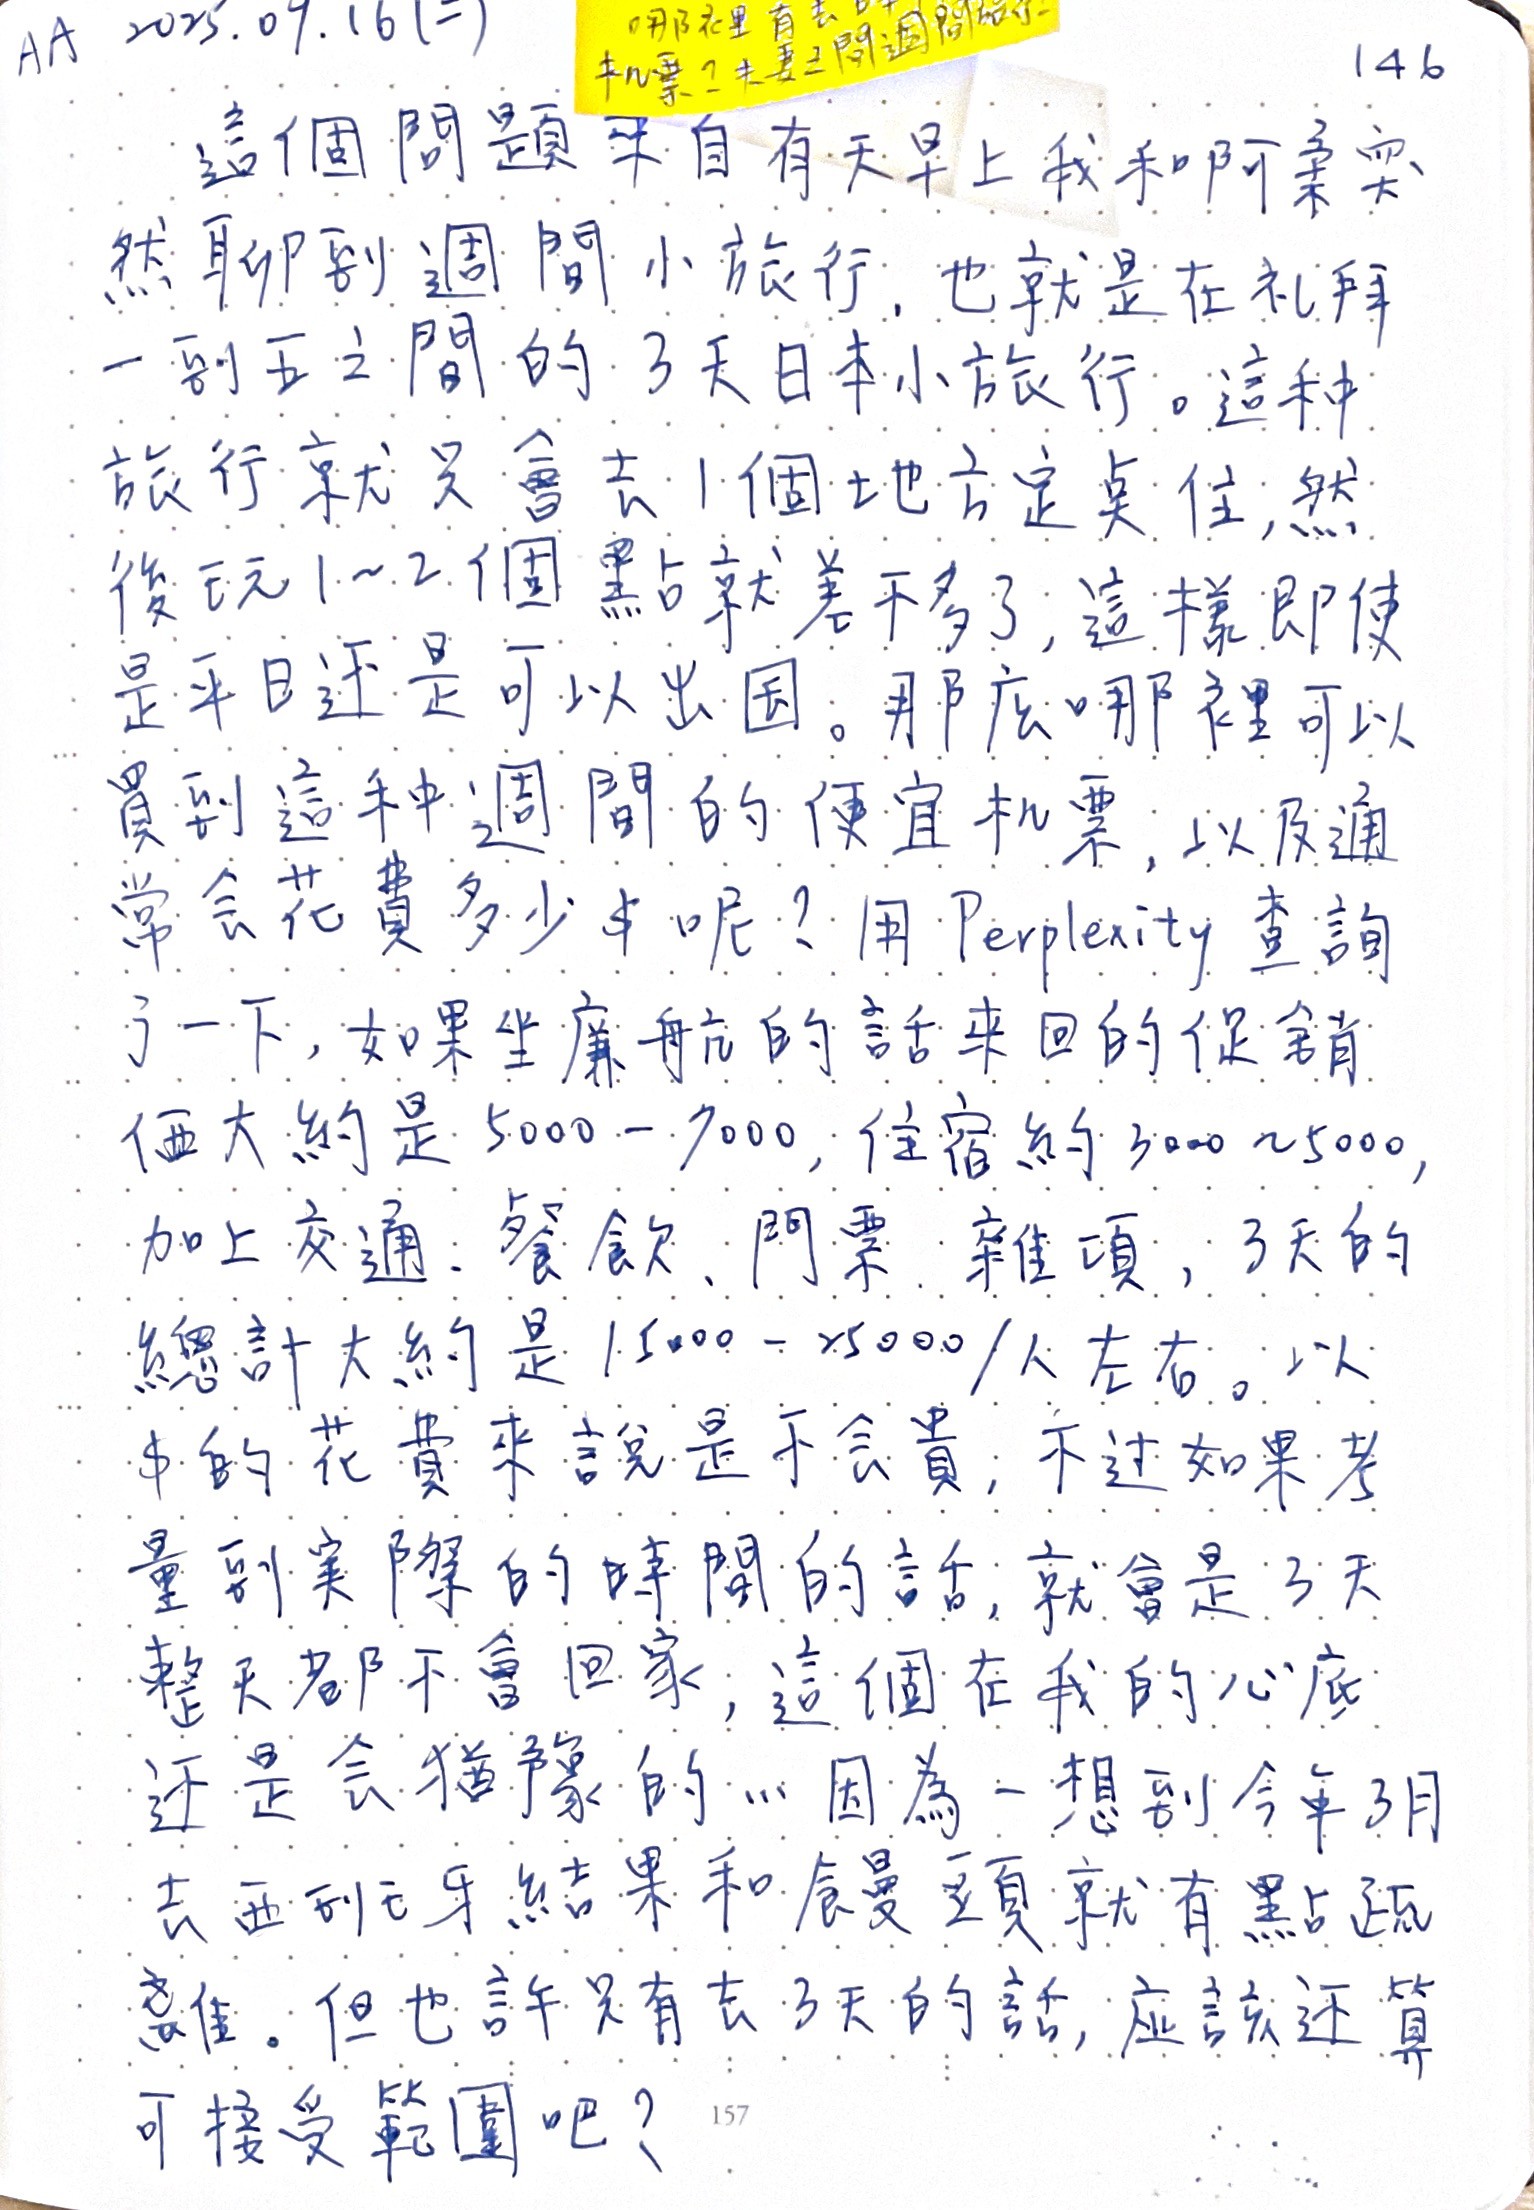 AA 2025.09.16(二)
哪裡有去日本
机票？夫妻之間週間旅行
146
這個問題來自有天早上我和阿柔突
然聊到週間小旅行，也就是在礼拜
一到五之間的3天日本小旅行。這种
旅行就只會去1個地方定奌住，然
後玩1~2個點就差不多了，這樣即使
是平日还是可以出国。那底哪裡可以
買到這种週間的便宜机票，以及通
常会花費多少$呢？用Perplexity查詢
了一下，如果坐廉航的話來回的促銷
価大約是5000-7000，住宿約3000~5000，
加上交通、餐飲、門票、雜項，3天的
總計大約是15000-25000/人左右。以
$的花費來說是不会貴，不过如果考
量到実際的時間的話，就會是3天
整天都不會回家，這個在我的心底
还是会猶豫的…因為一想到今年3月
去西班牙結果和饅頭就有點疏
離。但也許只有去3天的話，应該还算
可接受範圍吧？
157